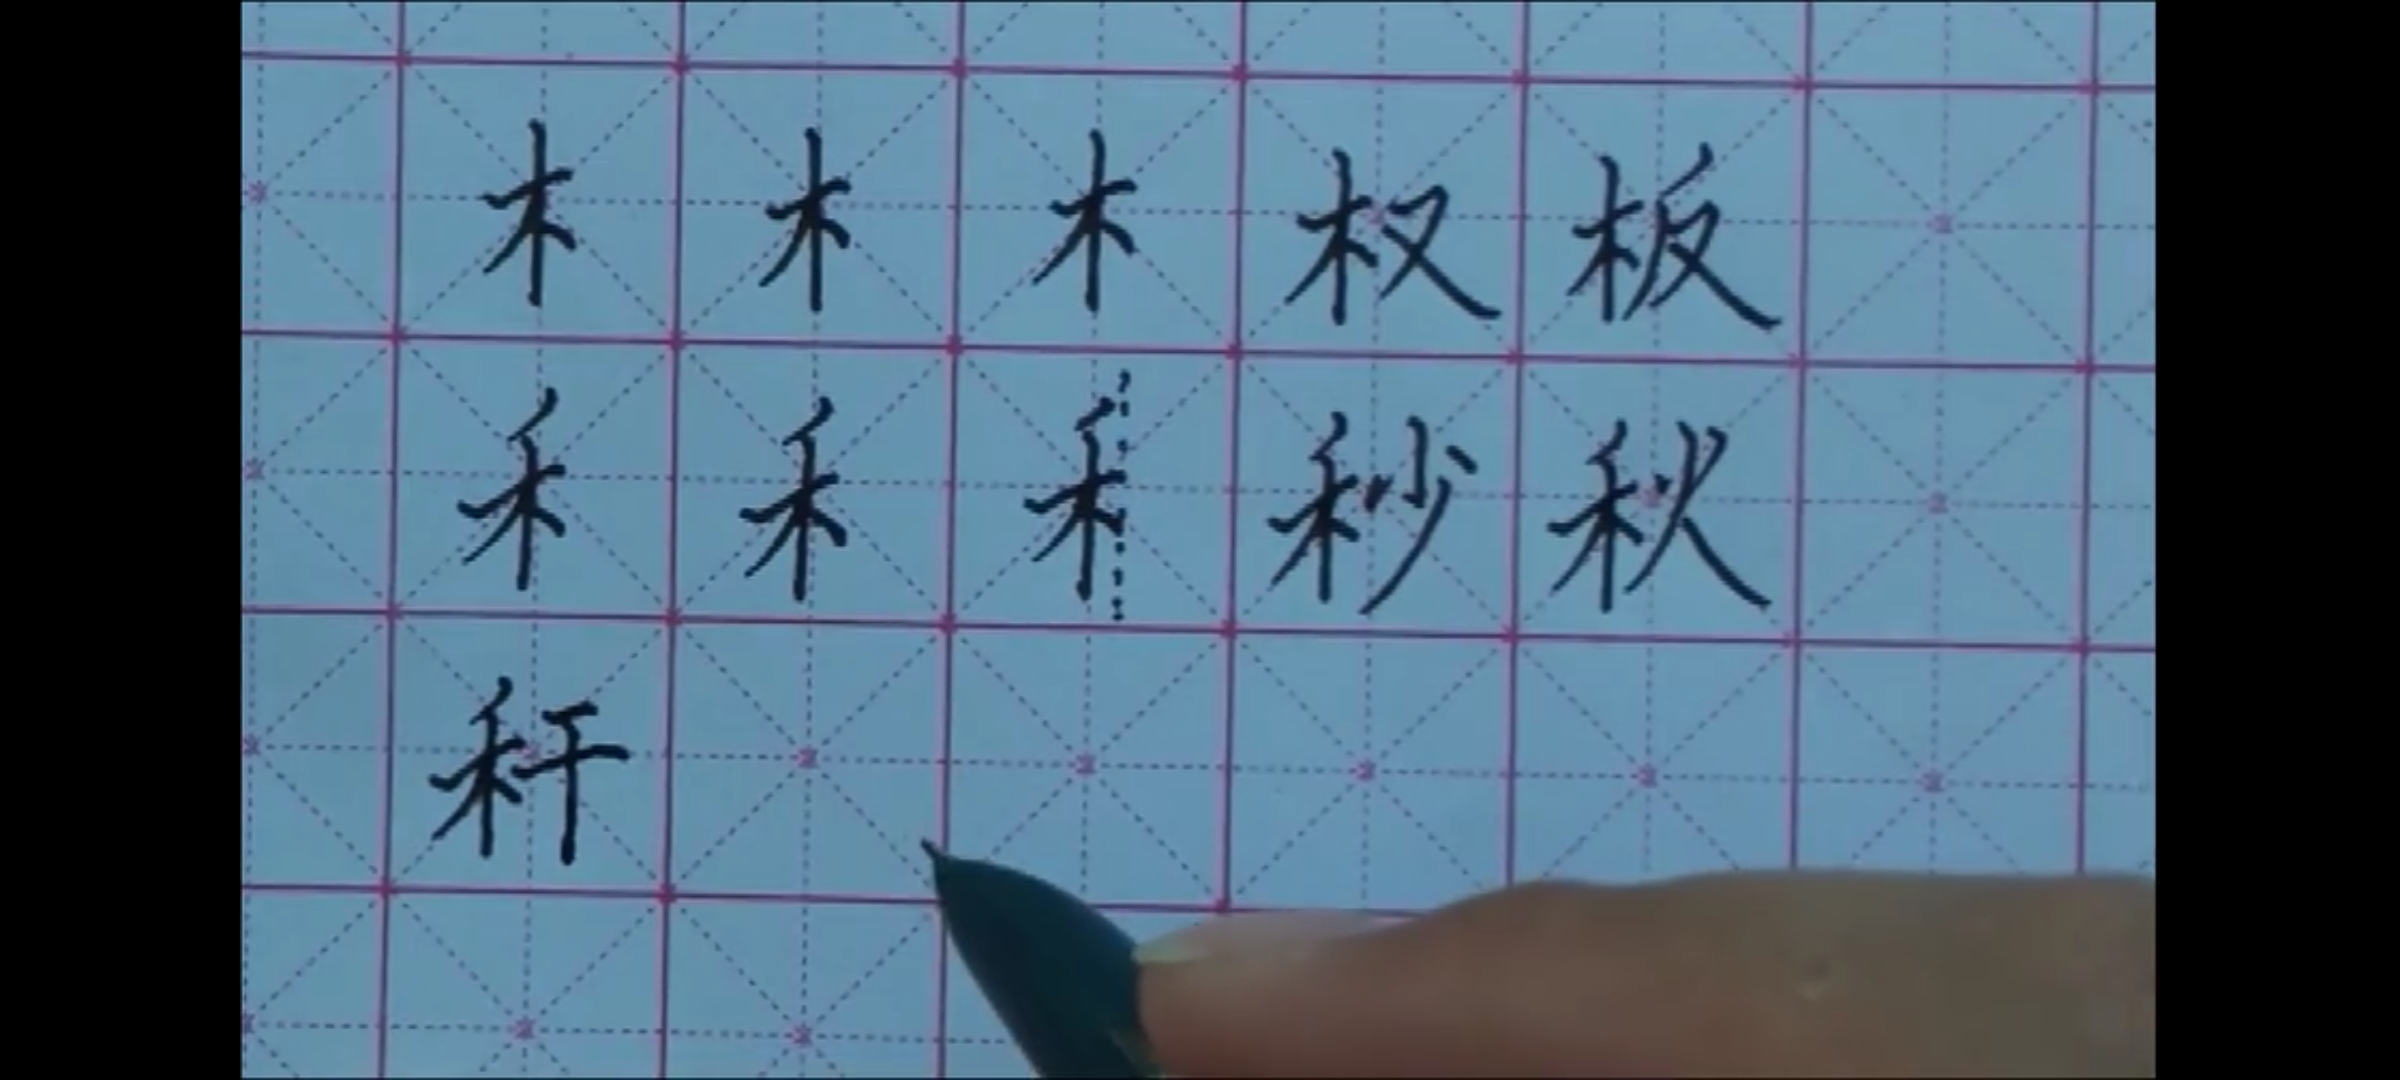 木 木 木 权 板
禾 禾 禾 秒 秋
秆